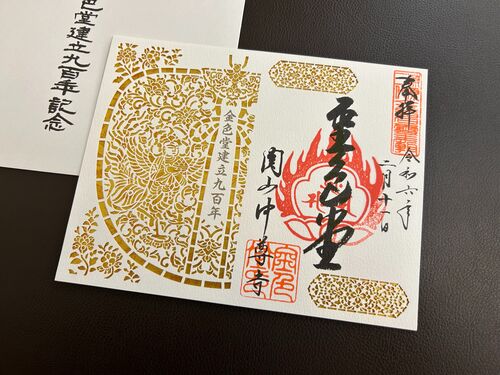 奉拝
令和六年
二月十一日
金色堂
関山中尊寺
金色堂建立九百年
色堂建立九百年記念